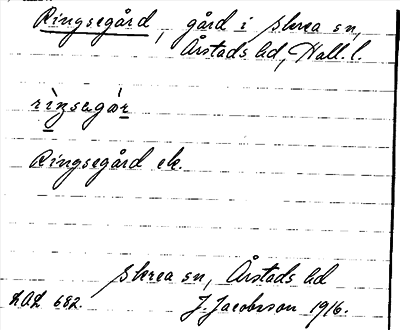 Ringsegård, gård i Skrea sn,
Årstads hd, Hall. l.
Ringsegård ek.
Skrea sn, Årstads hd
682. J. Jacobsson 1916.